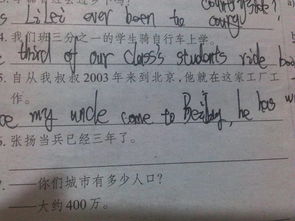 Lilei ever been to
4. 我们班三分之一的学生骑自行车上学。
third of our class's students ride
5. 自从我叔叔2003年来到北京,他就在这家工厂工
作。
my uncle come to Beijing, he has
6. 张扬当兵已经三年了。
7. ——你们城市有多少人口?
——大约400万。